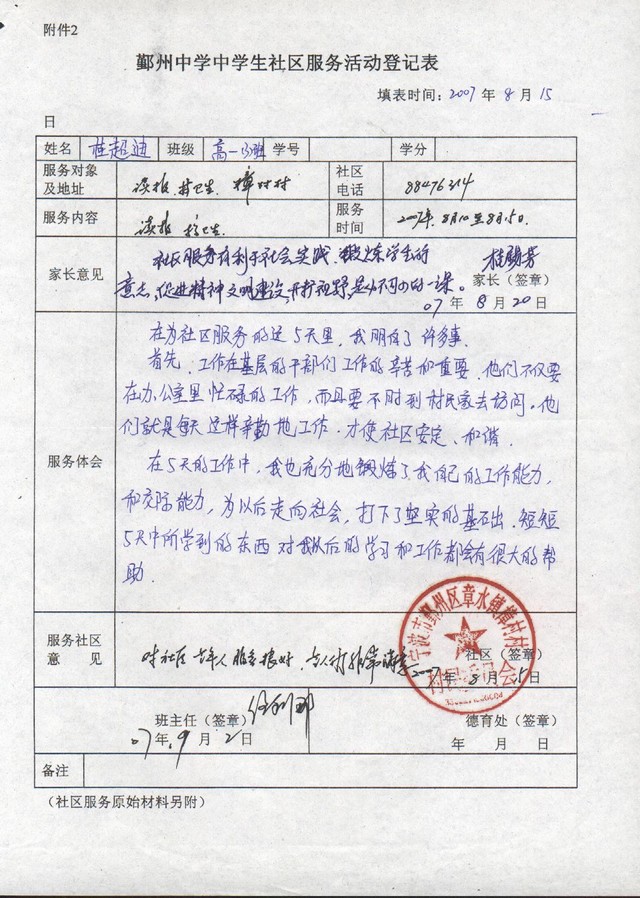 附件2
鄞州中学中学生社区服务活动登记表
填表时间：2007 年 8 月 15
日
姓名 桂超迪 班级 高一(3)班 学号 学分
服务对象及地址 读报 搞卫生 樟村村 社区电话 88476314
服务内容 读报 搞卫生 服务时间 2007年 8月10至8月15日.
家长意见 社区服务有利于社会实践、锻炼学生的
意志,促进精神文明建设,开扩视野,是必不可少的一课。 家长（签章）
07 年 8 月 20 日
服务体会
在为社区服务的这5天里,我明白了许多事.
首先,工作在基层的干部们工作的辛苦和重要.他们不仅要
在办公室里忙碌的工作,而且要不时到村民家去访问.他
们就是每天这样辛勤地工作,才使社区安定、和谐.
在5天的工作中,我也充分地锻炼了我自己的工作能力,
和交际能力,为以后走向社会,打下了坚实的基础.短短
5天中所学到的东西对我以后的学习和工作都会有很大的帮
助.
服务社区意见 对社区老年人服务很好,与人打 社区（签章）
2007 年 8 月 15日
宁波市鄞州区章水镇樟村村村民委员会
班主任（签章） 德育处（签章）
07年.9 月 2日 年 月 日
备注
（社区服务原始材料另附）